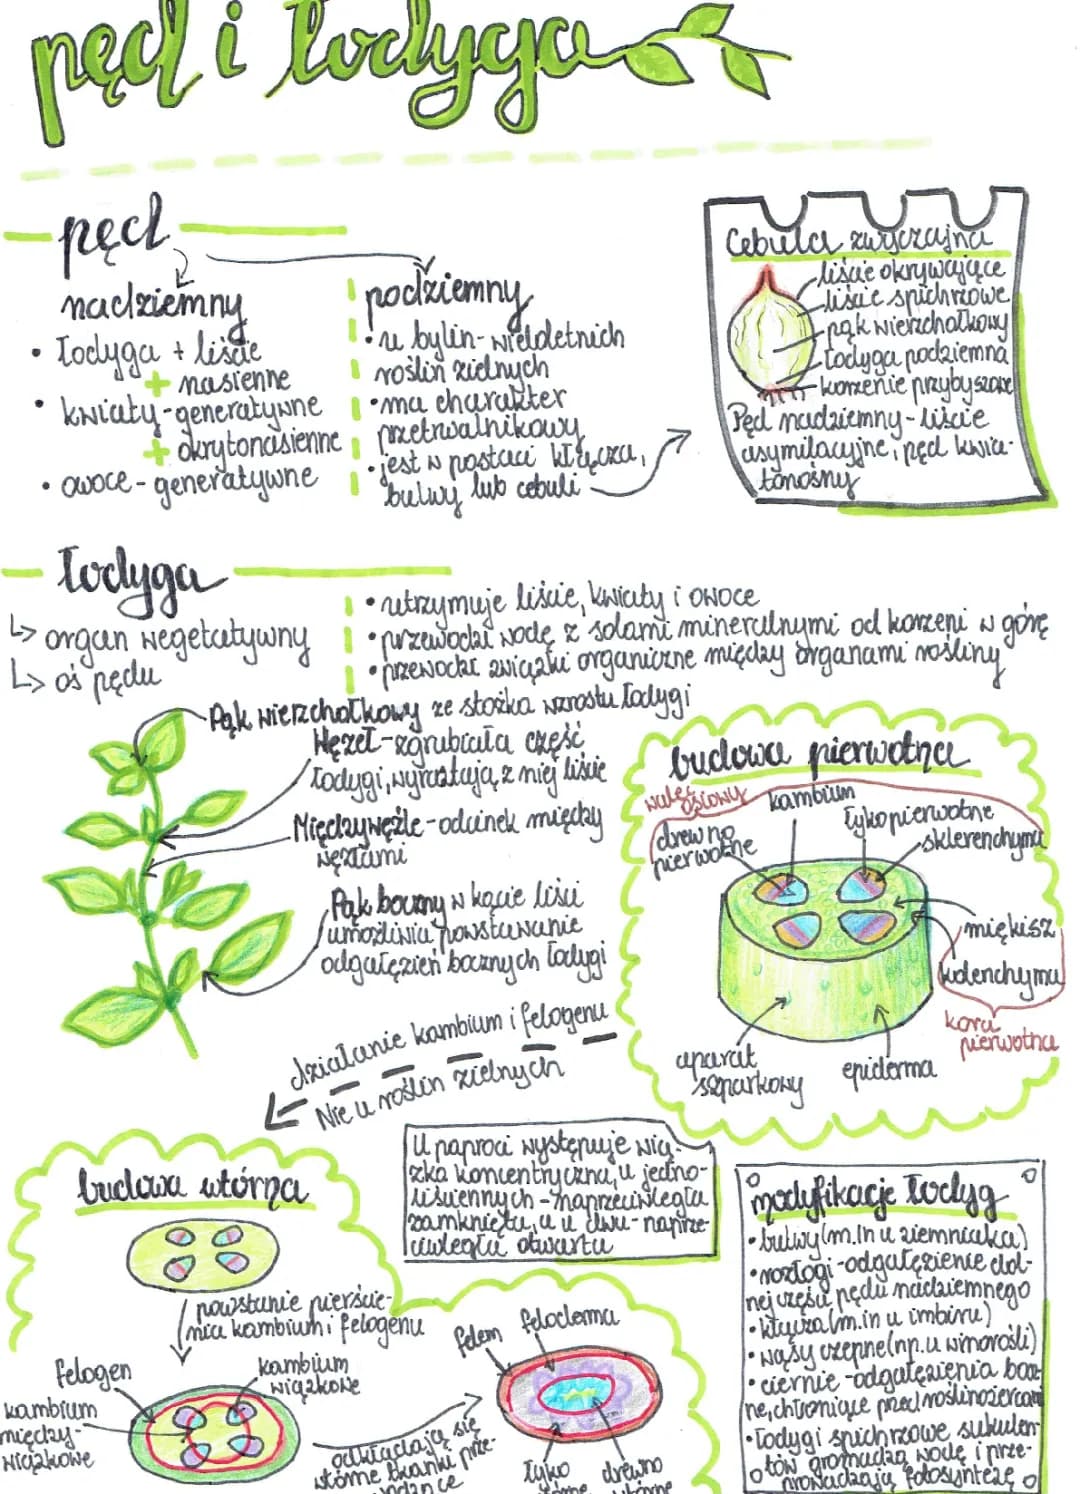 pęd i łodyga
pęd
nadziemny
• łodyga + liście
+ nasienne
• kwiaty - generatywne
+ okrytonasienne
• owoce - generatywne
podziemny
• u bylin - wieloletnich
roślin zielnych
• ma charakter
przetrwalnikowy
• jest w postaci kłącza,
bulwy lub cebuli
Cebula zwyczajna
liście okrywające
liście spichrzowe
pąk wierzchołkowy
łodyga podziemna
korzenie przybyszowe
Pęd nadziemny - liście
asymilacyjne, pęd kwia-
tonośny
łodyga
↳ organ wegetatywny
↳ oś pędu
• utrzymuje liście, kwiaty i owoce
• przewodzi wodę z solami mineralnymi od korzeni w górę
• przewodzi związki organiczne między organami rośliny
Pąk wierzchołkowy ze stożka wzrostu łodygi
Węzeł - zgrubiała część
łodygi, wyrastają z niej liście
Międzywęźle - odcinek między
węzłami
Pąk boczny w kącie liści
umożliwia powstawanie
odgałęzień bocznych łodygi
budowa pierwotna
walec osiowy
kambium
łyko pierwotne
drewno
pierwotne
sklerenchyma
miękisz
kolenchyma
kora
pierwotna
aparat
szparkowy
epiderma
działanie kambium i felogenu
Nie u roślin zielnych
budowa wtórna
powstanie pierście-
nia kambium i felogenu
felogen
kambium
wiązkowe
kambium
między-
wiązkowe
odkładają się
wtórne tkanki prze-
wodzące
U paproci występuje wią-
zka koncentryczna, u jedno-
liściennych - naprzeciwległa
zamknięta, a u dwu - naprze-
ciwległa otwarta
felem
feloderma
łyko
wtórne
drewno
wtórne
modyfikacje łodyg
• bulwy (m.in u ziemniaka)
• rozłogi - odgałęzienie dol-
nej części pędu nadziemnego
• kłącza (m.in u imbiru)
• wąsy czepne (np. u winorośli)
• ciernie - odgałęzienia bocz-
ne, chroniące przed roślinożercami
• łodygi spichrzowe sukulen-
tów gromadzą wodę i prze-
prowadzają fotosyntezę